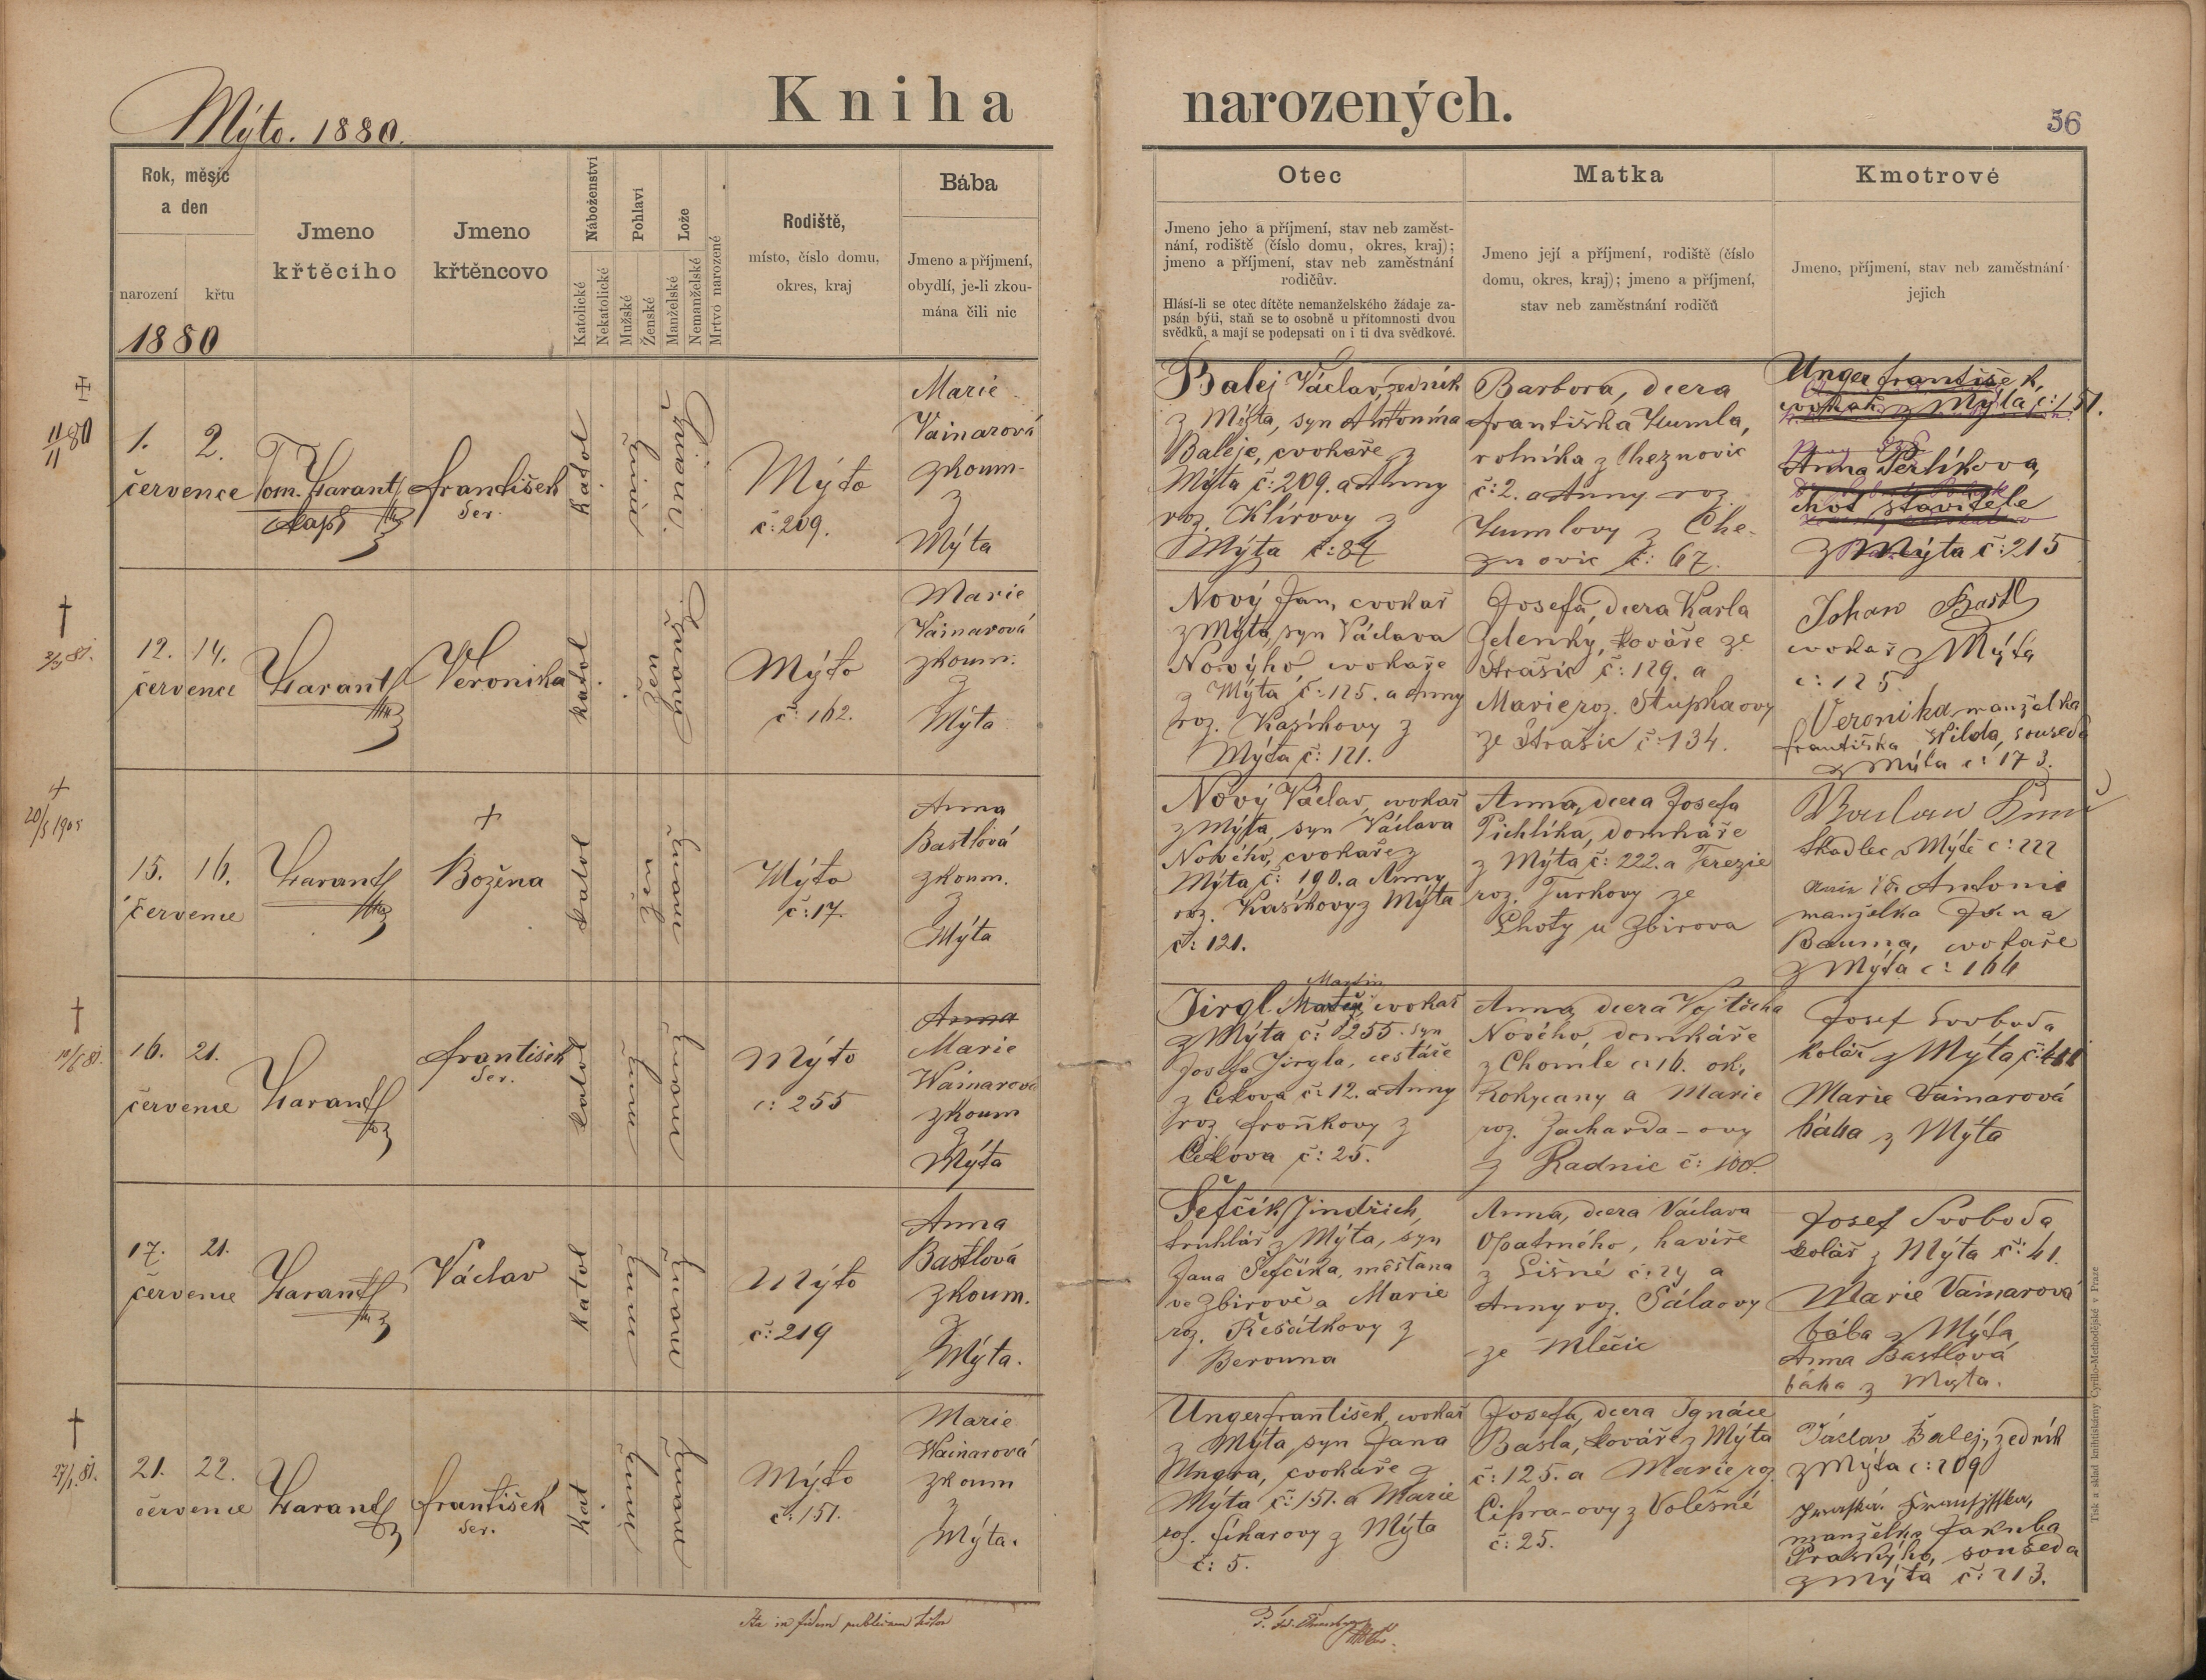 Mýto. 1880.
Kniha narozených.
56
Rok, měsíc
a den
narození
křtu
1880
Jmeno
křtěcího
Jmeno
křtěncovo
Náboženství
Katolické
Nekatolické
Pohlaví
Mužské
Ženské
Lože
Manželské
Nemanželské
Mrtvo narozené
Rodiště,
místo, číslo domu,
okres, kraj
Bába
Jmeno a příjmení,
obydlí, je-li zkou-
mána čili nic
Otec
Jmeno jeho a příjmení, stav neb zaměst-
nání, rodiště (číslo domu, okres, kraj);
jmeno a příjmení, stav neb zaměstnání
rodičův.
Hlásí-li se otec dítěte nemanželského žádaje za-
psán býti, staň se to osobně u přítomnosti dvou
svědků, a mají se podepsati on i ti dva svědkové.
Matka
Jmeno její a příjmení, rodiště (číslo
domu, okres, kraj); jmeno a příjmení,
stav neb zaměstnání rodičů
Kmotrové
Jmeno, příjmení, stav neb zaměstnání
jejich
1. 2.
července
Tom. Harant
kapl
František
Ser.
katol
Mýto
č: 209.
Marie
Vainarová
zkoum-
z
Mýta
Balej Václav, zedník
z Mýta, syn Antonína
Baleje, cvokaře z
Mýta č: 209. a Anny
roz. Klírovy z
Mýta č: 87
Barbora, dcera
Františka Humla,
rolníka z Cheznovic
č: 2. a Anny roz.
Humlovy z Che-
znovic č: 67.
Unger František,
cvokař z Mýta č: 151.
Anna Perlíkova,
choť stavitele
z Mýta č: 215
12. 14.
července
Harant
Veronika
katol
Mýto
č: 162.
Marie
Vainarová
zkoum.
z
Mýta
Nový Jan, cvokař
z Mýta, syn Václava
Nového, cvokaře
z Mýta č: 125. a Anny
roz. Kasíkovy z
Mýta č: 121.
Josefa, dcera Karla
Zelenky, kováře ze
Strašic č: 129. a
Marie roz. Stupkaovy
ze Strašic č: 134.
Johan Bastl
cvokař z Mýta
č: 125.
Veronika manželka
Františka Hilda, souseda
z Mýta č: 173.
20/5 1905
15. 16.
července
Harant
Božena
katol
Mýto
č: 17.
Anna
Bastlová
zkoum.
z
Mýta
Nový Václav, cvokař
z Mýta, syn Václava
Nového, cvokaře z
Mýta č: 190. a Anny
roz. Kasíkovy z Mýta
č: 121.
Anna, dcera Josefa
Pichlíka, domkáře
z Mýta č: 222. a Terezie
roz. Turkovy ze
Lhoty u Zbirova
tkadlec v Mýtě č: 222
Antonie
manželka Jana
Bauma, cvokaře
z Mýta č: 164
16. 21.
července
Harant
František
Ser.
katol
Mýto
č: 255
Anna
Marie
Wainarova
zkoum
z
Mýta
Martin
Jirgl Matěj, cvokař
z Mýta č: 255. syn
Josefa Jirgla, cestáře
z Cekova č: 12. a Anny
roz. Froňkovy z
Cekova č: 25.
Anna, dcera Vojtěcha
Nového, domkáře
z Chomle č: 16. ok.
Rokycany a Marie
roz. Zacharda-ovy
z Radnic č: 100.
Josef Svoboda
kolář z Mýta č: 41
Marie Vainarová
bába z Mýta
17. 21.
července
Harant
Václav
katol
Mýto
č: 219
Anna
Bastlová
zkoum.
z
Mýta.
Šefčík Jindřich,
truhlář z Mýta, syn
Jana Šefčíka, měšťana
ve Zbirově a Marie
roz. Řešátkovy z
Berouna
Anna, dcera Václava
Opatrného, havíře
z Lišné č: 24 a
Anny roz. Šálaovy
ze Mlečic
Josef Svoboda
kolář z Mýta č: 41.
Marie Vainarová
bába z Mýta,
Anna Bastlová
bába z Mýta.
21. 22.
července
Harant
František
Ser.
Kat
Mýto
č: 151.
Marie
Wainarová
zkoum
z
Mýta.
Unger František, cvokař
z Mýta, syn Jana
Ungra, cvokaře z
Mýta č: 151. a Marie
roz. Fikarovy z Mýta
č: 5.
Josefa, dcera Ignáce
Basla, kováře z Mýta
č: 125. a Marie roz.
Cipra-ovy z Volešné
č: 25.
Václav Balej, zedník
z Mýta č: 209
Františka,
manželka Jakuba
Praského, souseda
z Mýta č: 213.
Ita in fidem publicam
Tisk a sklad knihtiskárny Cyrillo-Methodějské v Praze